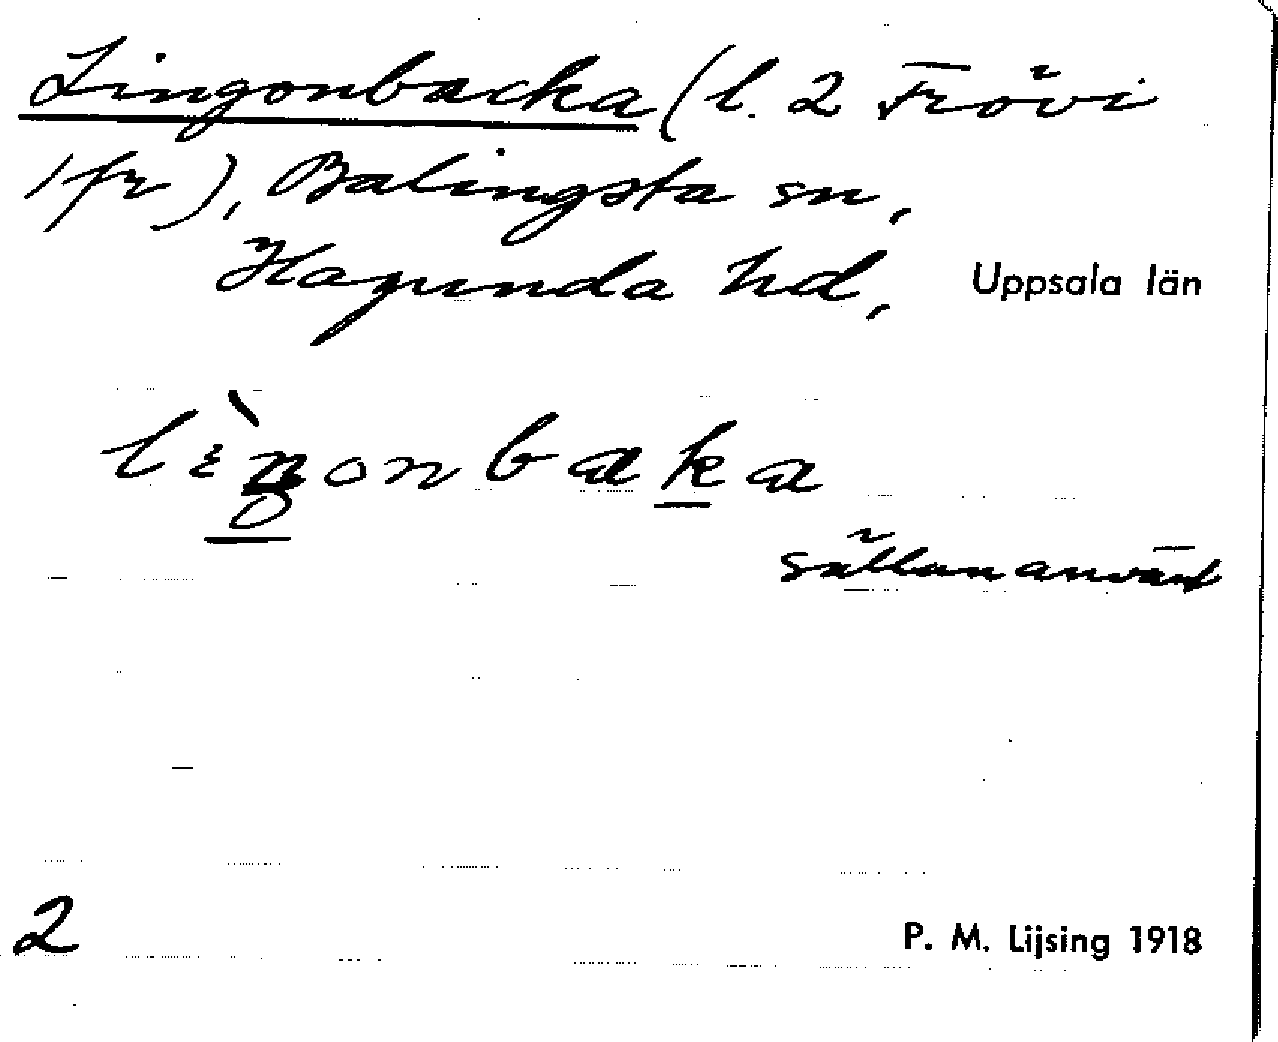 Lingonbacka (l. 2 Frövi
1 fr), Balingsta sn,
Hagunda hd, Uppsala län
lìŋonbaka
sällan använt
2
P. M. Lijsing 1918